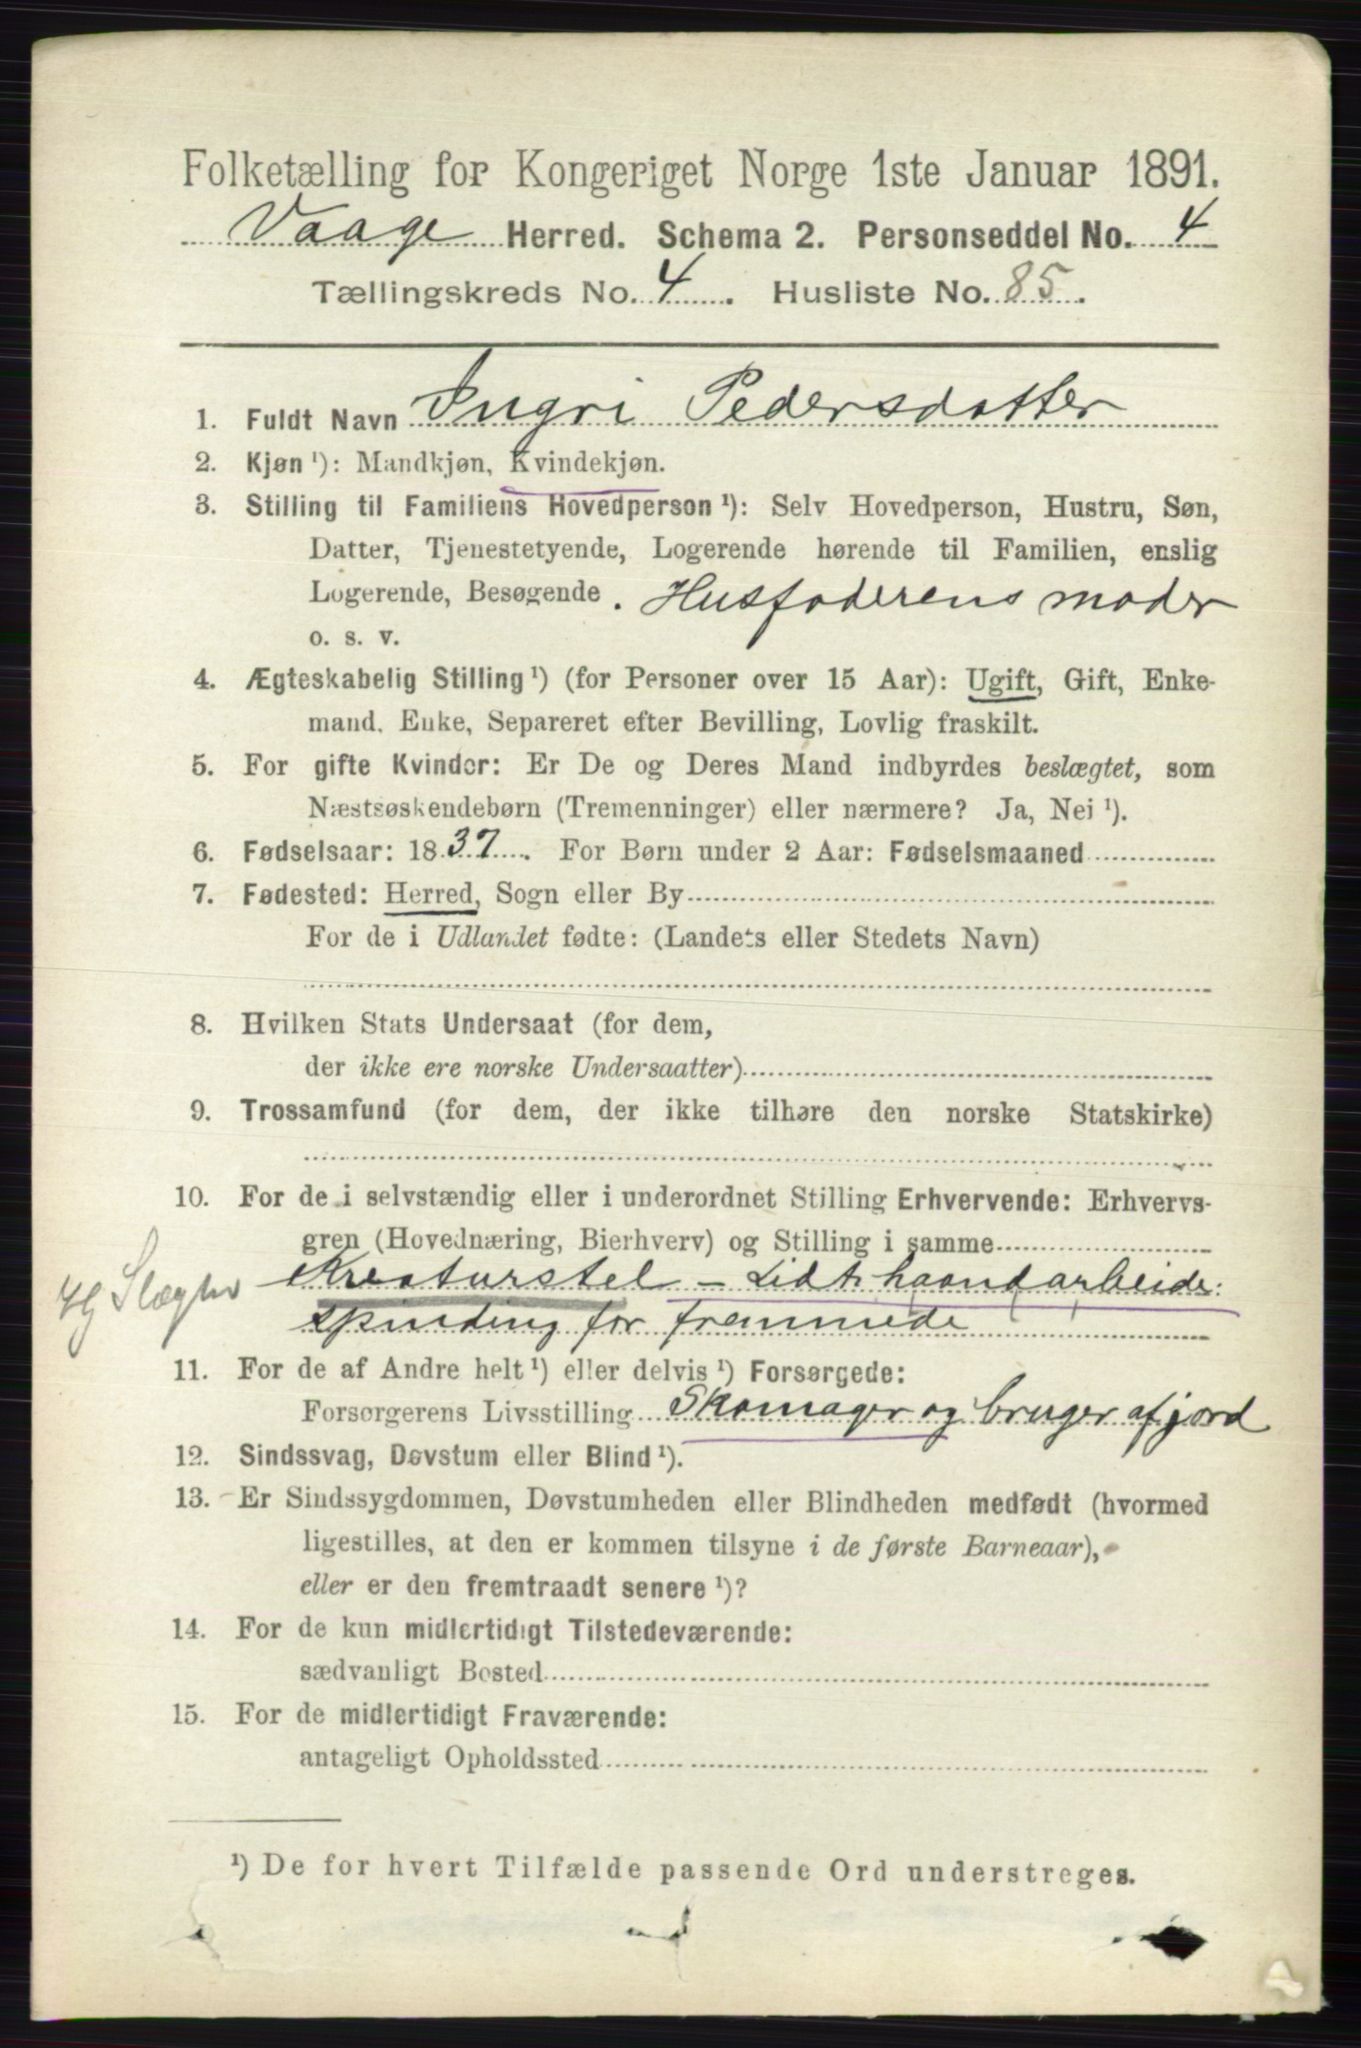 Folketælling for Kongeriget Norge 1ste Januar 1891.
Vaage Herred. Schema 2. Personseddel No. 4
Tællingskreds No. 4. Husliste No. 85.
1. Fuldt Navn Ingri Pedersdatter
2. Kjøn ¹): Mandkjøn, Kvindekjøn.
3. Stilling til Familiens Hovedperson ¹): Selv Hovedperson, Hustru, Søn,
Datter, Tjenestetyende, Logerende hørende til Familien, enslig
Logerende, Besøgende . Husfaderens moder
o. s. v.
4. Ægteskabelig Stilling ¹) (for Personer over 15 Aar): Ugift, Gift, Enke-
mand, Enke, Separeret efter Bevilling, Lovlig fraskilt.
5. For gifte Kvinder: Er De og Deres Mand indbyrdes beslægtet, som
Næstsøskendebørn (Tremenninger) eller nærmere? Ja, Nei ¹).
6. Fødselsaar: 1837. For Børn under 2 Aar: Fødselsmaaned
7. Fødested: Herred, Sogn eller By
For de i Udlandet fødte: (Landets eller Stedets Navn)
8. Hvilken Stats Undersaat (for dem,
der ikke ere norske Undersaatter)
9. Trossamfund (for dem, der ikke tilhøre den norske Statskirke)
10. For de i selvstændig eller i underordnet Stilling Erhvervende: Erhvervs-
gren (Hovednæring, Bierhverv) og Stilling i samme
Kreaturstel – Lidt haandarbeide:
spinding for fremmede
11. For de af Andre helt ¹) eller delvis ¹) Forsørgede:
Forsørgerens Livsstilling Skomager og bruger af jord
12. Sindssvag, Døvstum eller Blind ¹).
13. Er Sindssygdommen, Døvstumheden eller Blindheden medfødt (hvormed
ligestilles, at den er kommen tilsyne i de første Barneaar),
eller er den fremtraadt senere ¹)?
14. For de kun midlertidigt Tilstedeværende:
sædvanligt Bosted
15. For de midlertidigt Fraværende:
antageligt Opholdssted
¹) De for hvert Tilfælde passende Ord understreges.